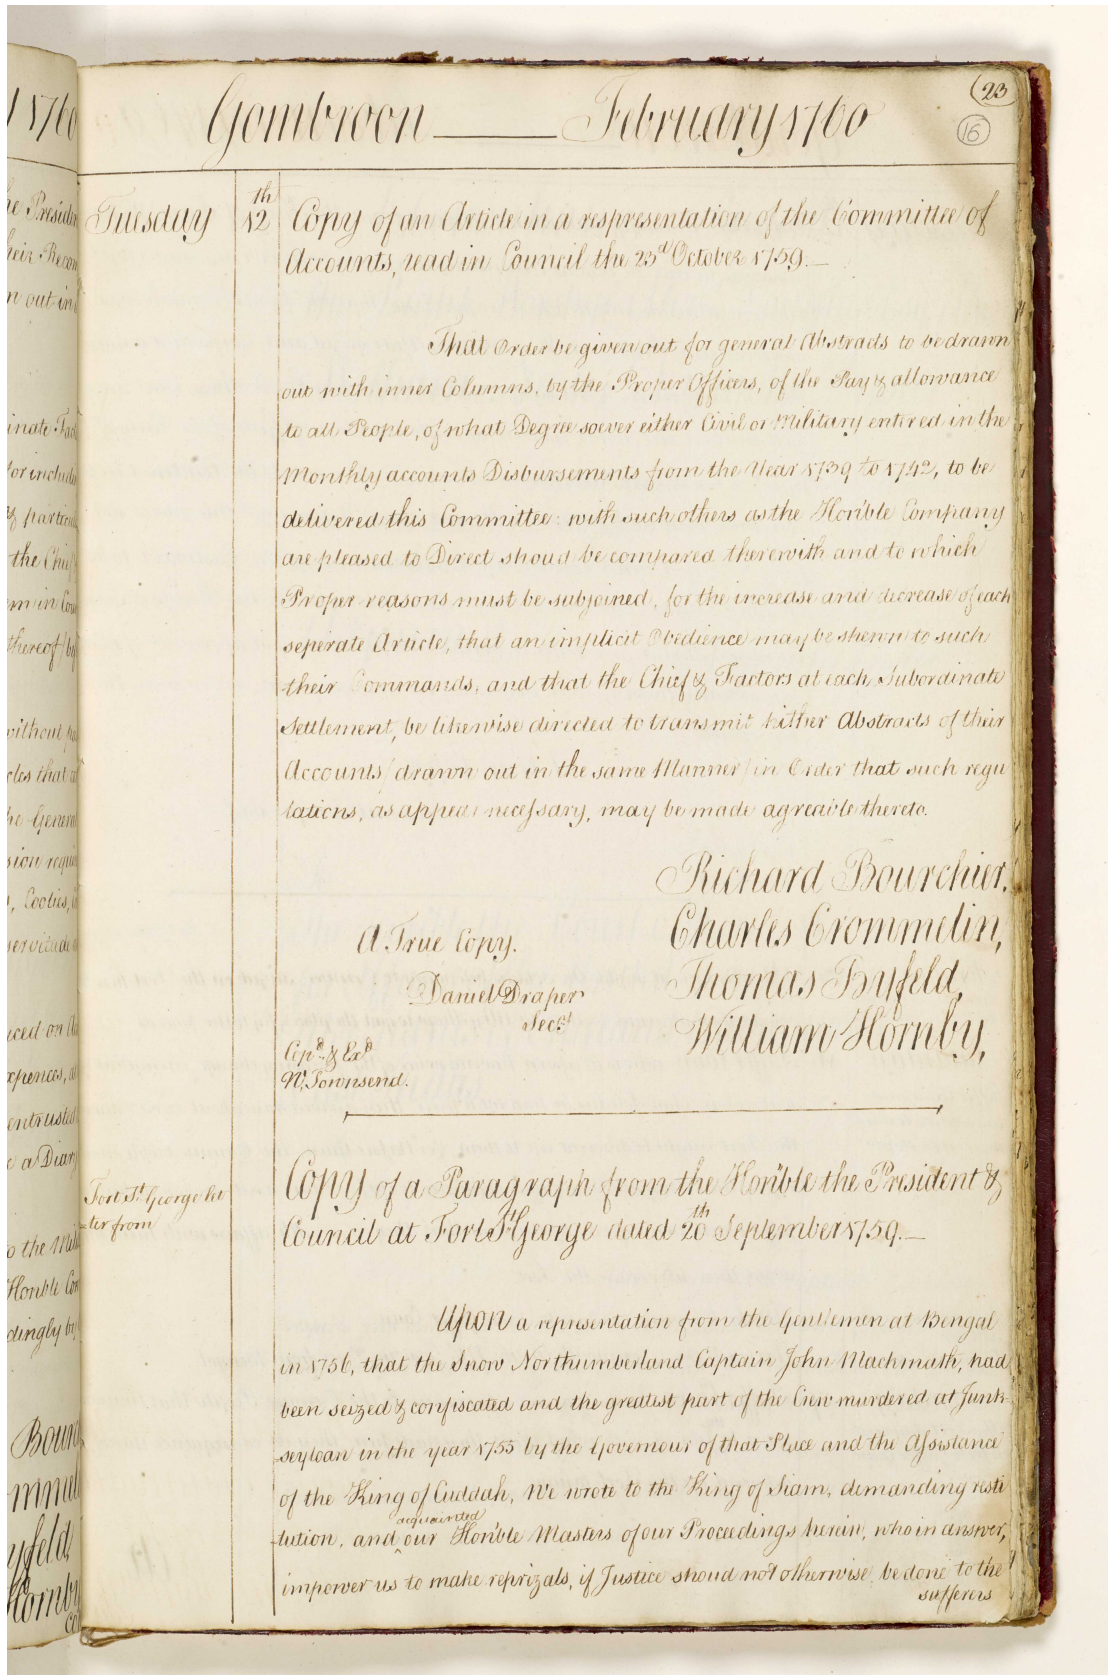 23
16
Gombroon —— February 1760
Tuesday 12th Copy of an Article in a respresentation of the Committee of
Accounts, read in Council the 23d October 1759.—
That Order be given out for general Abstracts to be drawn
out with inner Columns, by the Proper Officers, of the Pay & allowance
to all People, of what Degree soever either Civil or Military entered in the
Monthly accounts Disbursements from the Year 1739 to 1742, to be
delivered this Committee: with such others as the Honble Company
are pleased to Direct shoud be compared therewith and to which
Proper reasons must be subjoined, for the increase and decrease of each
seperate Article, that an implicit Obedience may be shewn to such
their Commands, and that the Chief & Factors at each Subordinate
Settlement, be likewise directed to transmit hither Abstracts of their
Accounts/drawn out in the same Manner/in Order that such regu
lations, as appear necessary, may be made agreable thereto.
Richard Bourchier,
Charles Crommelin,
A True Copy.
Thomas Byfeld,
Daniel Draper
Secy.
William Hornby,
Copd. & Exd
W. Townsend.
Fort St. George let
=ter from
Copy of a Paragraph from the Honble the President &
Council at Fort St George dated 20th September 1759.—
Upon a representation from the Gentlemen at Bengal
in 1756, that the Snow Northumberland Captain John Machmath, had
been seized & confiscated and the greatest part of the Crew murdered at Junk-
seyloan in the year 1755 by the Governour of that Place and the Assistance
of the King of Cuddah, We wrote to the King of Siam, demanding resti
tution, and ^acquainted our Honble Masters of our Proceedings herein, who in answer,
impower us to make reprizals, if Justice shoud not otherwise be done to the
sufferers